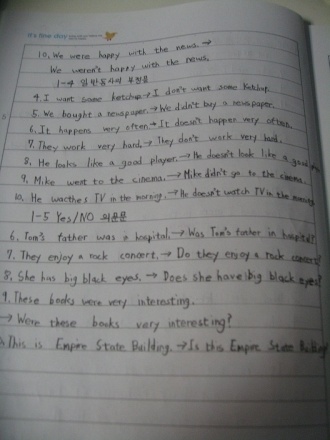 It's fine day
10. We were happy with the news. →
We weren't happy with the news.
1-4 일반동사의 부정문
4. I want some ketchup → I don't want some ketchup.
5. We bought a newspaper. → We didn't buy a newspaper.
6. It happens very often → It doesn't happen very often.
7. They work very hard. → They don't work very hard.
8. He looks like a good player. → He doesn't look like a good
9. Mike went to the cinema. → Mike didn't go to the cinema.
10. He wacthes TV in the mornig. → He doesn't watch TV in the
1-5 Yes/NO 의문문
6. Tom's father was a hospital. → Was Tom's father in hospital?
7. They enjoy a rock concert. → Do they enjoy a rock concert?
8. She has big black eyes. → Does she have big black eyes?
9. These books were very interesting.
→ Were these books very interesting?
This is Empire State Building. → Is this Empire State